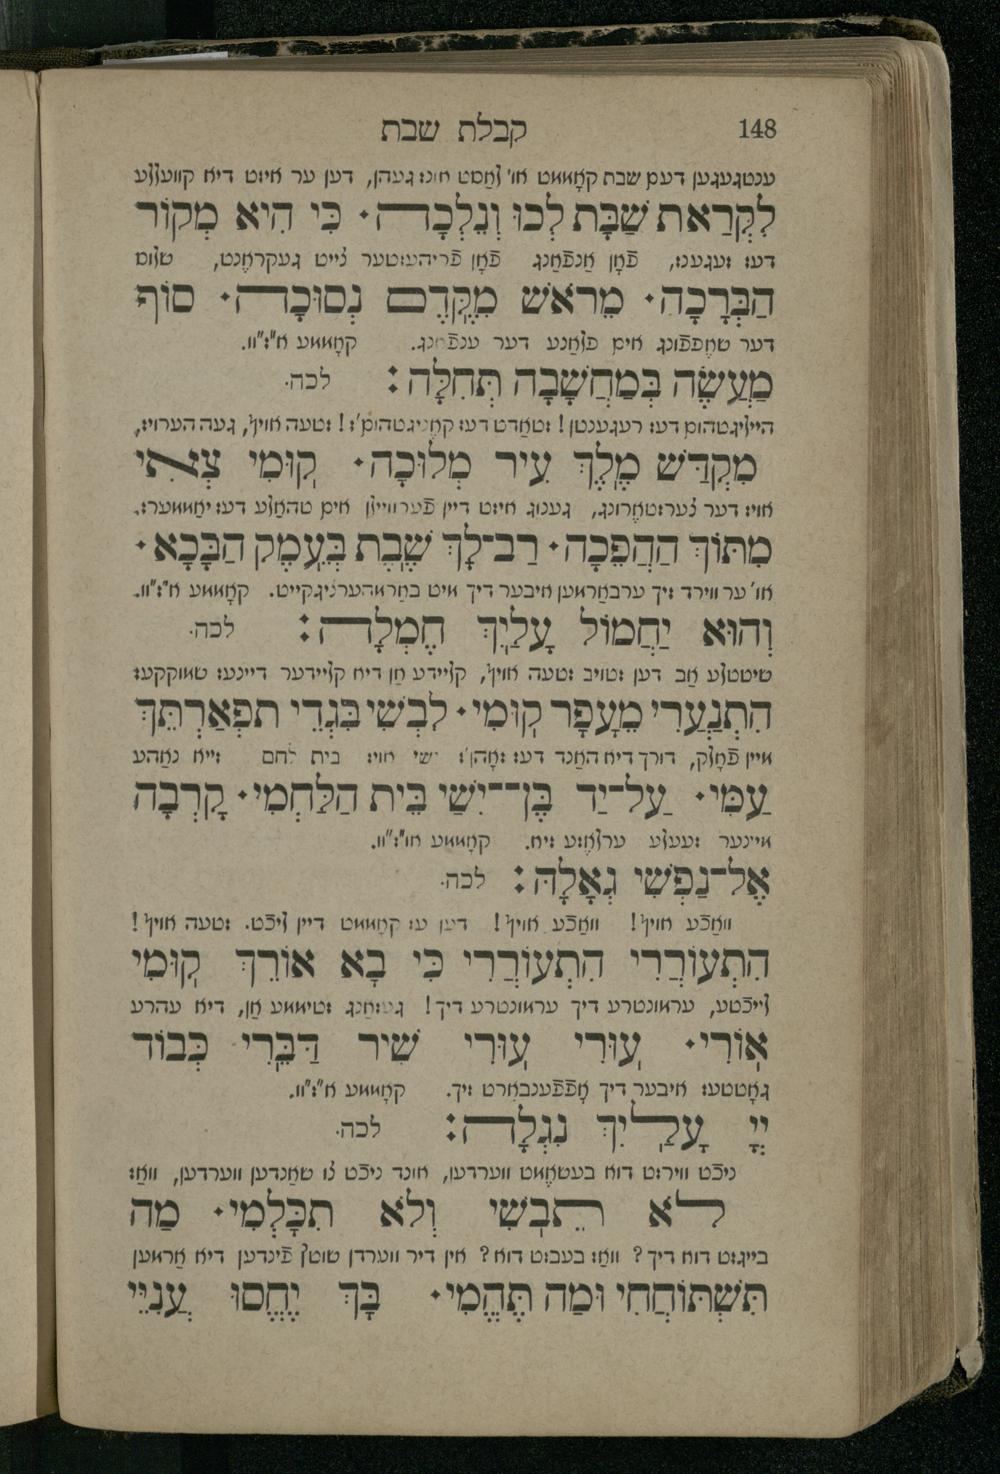 148 קבלת שבת
ענטגעגען דעם שבת קאָממט או' לאַסט אונז געהן, דען ער איזט דיא קוועללע
לִקְרַאת שַׁבָּת לְכוּ וְנֵלְכָה· כִּי הִיא מְקוֹר
דעז זעגענז, פֿאָן אַנפֿאַנג פֿאָן פֿריהעזטער צייט געקראָנט, שלוס
הַבְּרָכָה· מֵרֹאשׁ מִקֶּדֶם נְסוּכָה· סוֹף
דער שאֶפפֿונג אים פּלאַנע דער קאָממע א"ז"וו.
מַעֲשֶׂה בְּמַחֲשָׁבָה תְּחִלָּה: לכה·
הייליגטהום דעז רעגענטן! זטאַדט דעז קאֶניגטהום'ז! זטעה אויף, געה הערויז,
מִקְדַּשׁ מֶלֶךְ עִיר מְלוּכָה· קוּמִי צְאִי
אויז דער צערזטאֶרונג, גענוג איזט דיין פֿערווײַלן אים טהאַלע דעז יאַממערז.
מִתּוֹךְ הַהֲפֵכָה· רַב־לָךְ שֶׁבֶת בְּעֵמֶק הַבָּכָא·
או' ער ווירד זיך ערבאַרמען איבער דיך מיט באַרמהערציגקייט. קאָממע א"ז"וו.
וְהוּא יַחֲמוֹל עָלַיִךְ חֶמְלָה: לכה·
שיטטלע אַב דען זטויב זטעה אויף, קליידע אַן דיא קליידער דיינעז שמוקקעז
הִתְנַעֲרִי מֵעָפָר קוּמִי· לִבְשִׁי בִּגְדֵי תִפְאַרְתֵּךְ
מיין פֿאָלק, דורך דיא האַנד דעז זאָהן'ז ישי אויז בית לחם זייא נאַהע
עַמִּי· עַל־יַד בֶּן־יִשַׁי בֵּית הַלַּחְמִי· קָרְבָה
מיינער זעעלע ערלאֶזע זיא. קאָממע או"ז"וו.
אֶל־נַפְשִׁי גְאָלָהּ: לכה·
וואַכֿע אויף! וואַכֿע אויף! דען עז קאָממט דיין ליכֿט. זטעה אויף!
הִתְעוֹרְרִי הִתְעוֹרְרִי כִּי בָא אוֹרֵךְ קוּמִי
לייכֿטע, ערמונטרע דיך ערמונטרע דיך! געזאַנג זטיממע אַן, דיא עהרע
אֽוֹרִי· עוּרִי עוּרִי שִׁיר דַּבֵּרִי כְּבוֹד
גאָטטעז איבער דיך אָפֿפֿענבאַרט זיך. קאָממע א"ז"וו.
יְיָ עָלַיִךְ נִגְלָה: לכה·
ניכֿט ווירזט דוא בעשאֶמט ווערדען, אונד ניכֿט צו שאַנדען ווערדען, וואַז
לֹא תֵבֽשִׁי וְלֹא תִכָּלְמִי· מַה
בייגזט דוא דיך? וואַז בעבזט דוא? אין דיר ווערדן שוטץ פֿינדען דיא אַרמען
תִּשְׁתּוֹחֲחִי וּמַה תֶּהֱמִי· בָּךְ יֶחֱסוּ עֲנִיֵּי